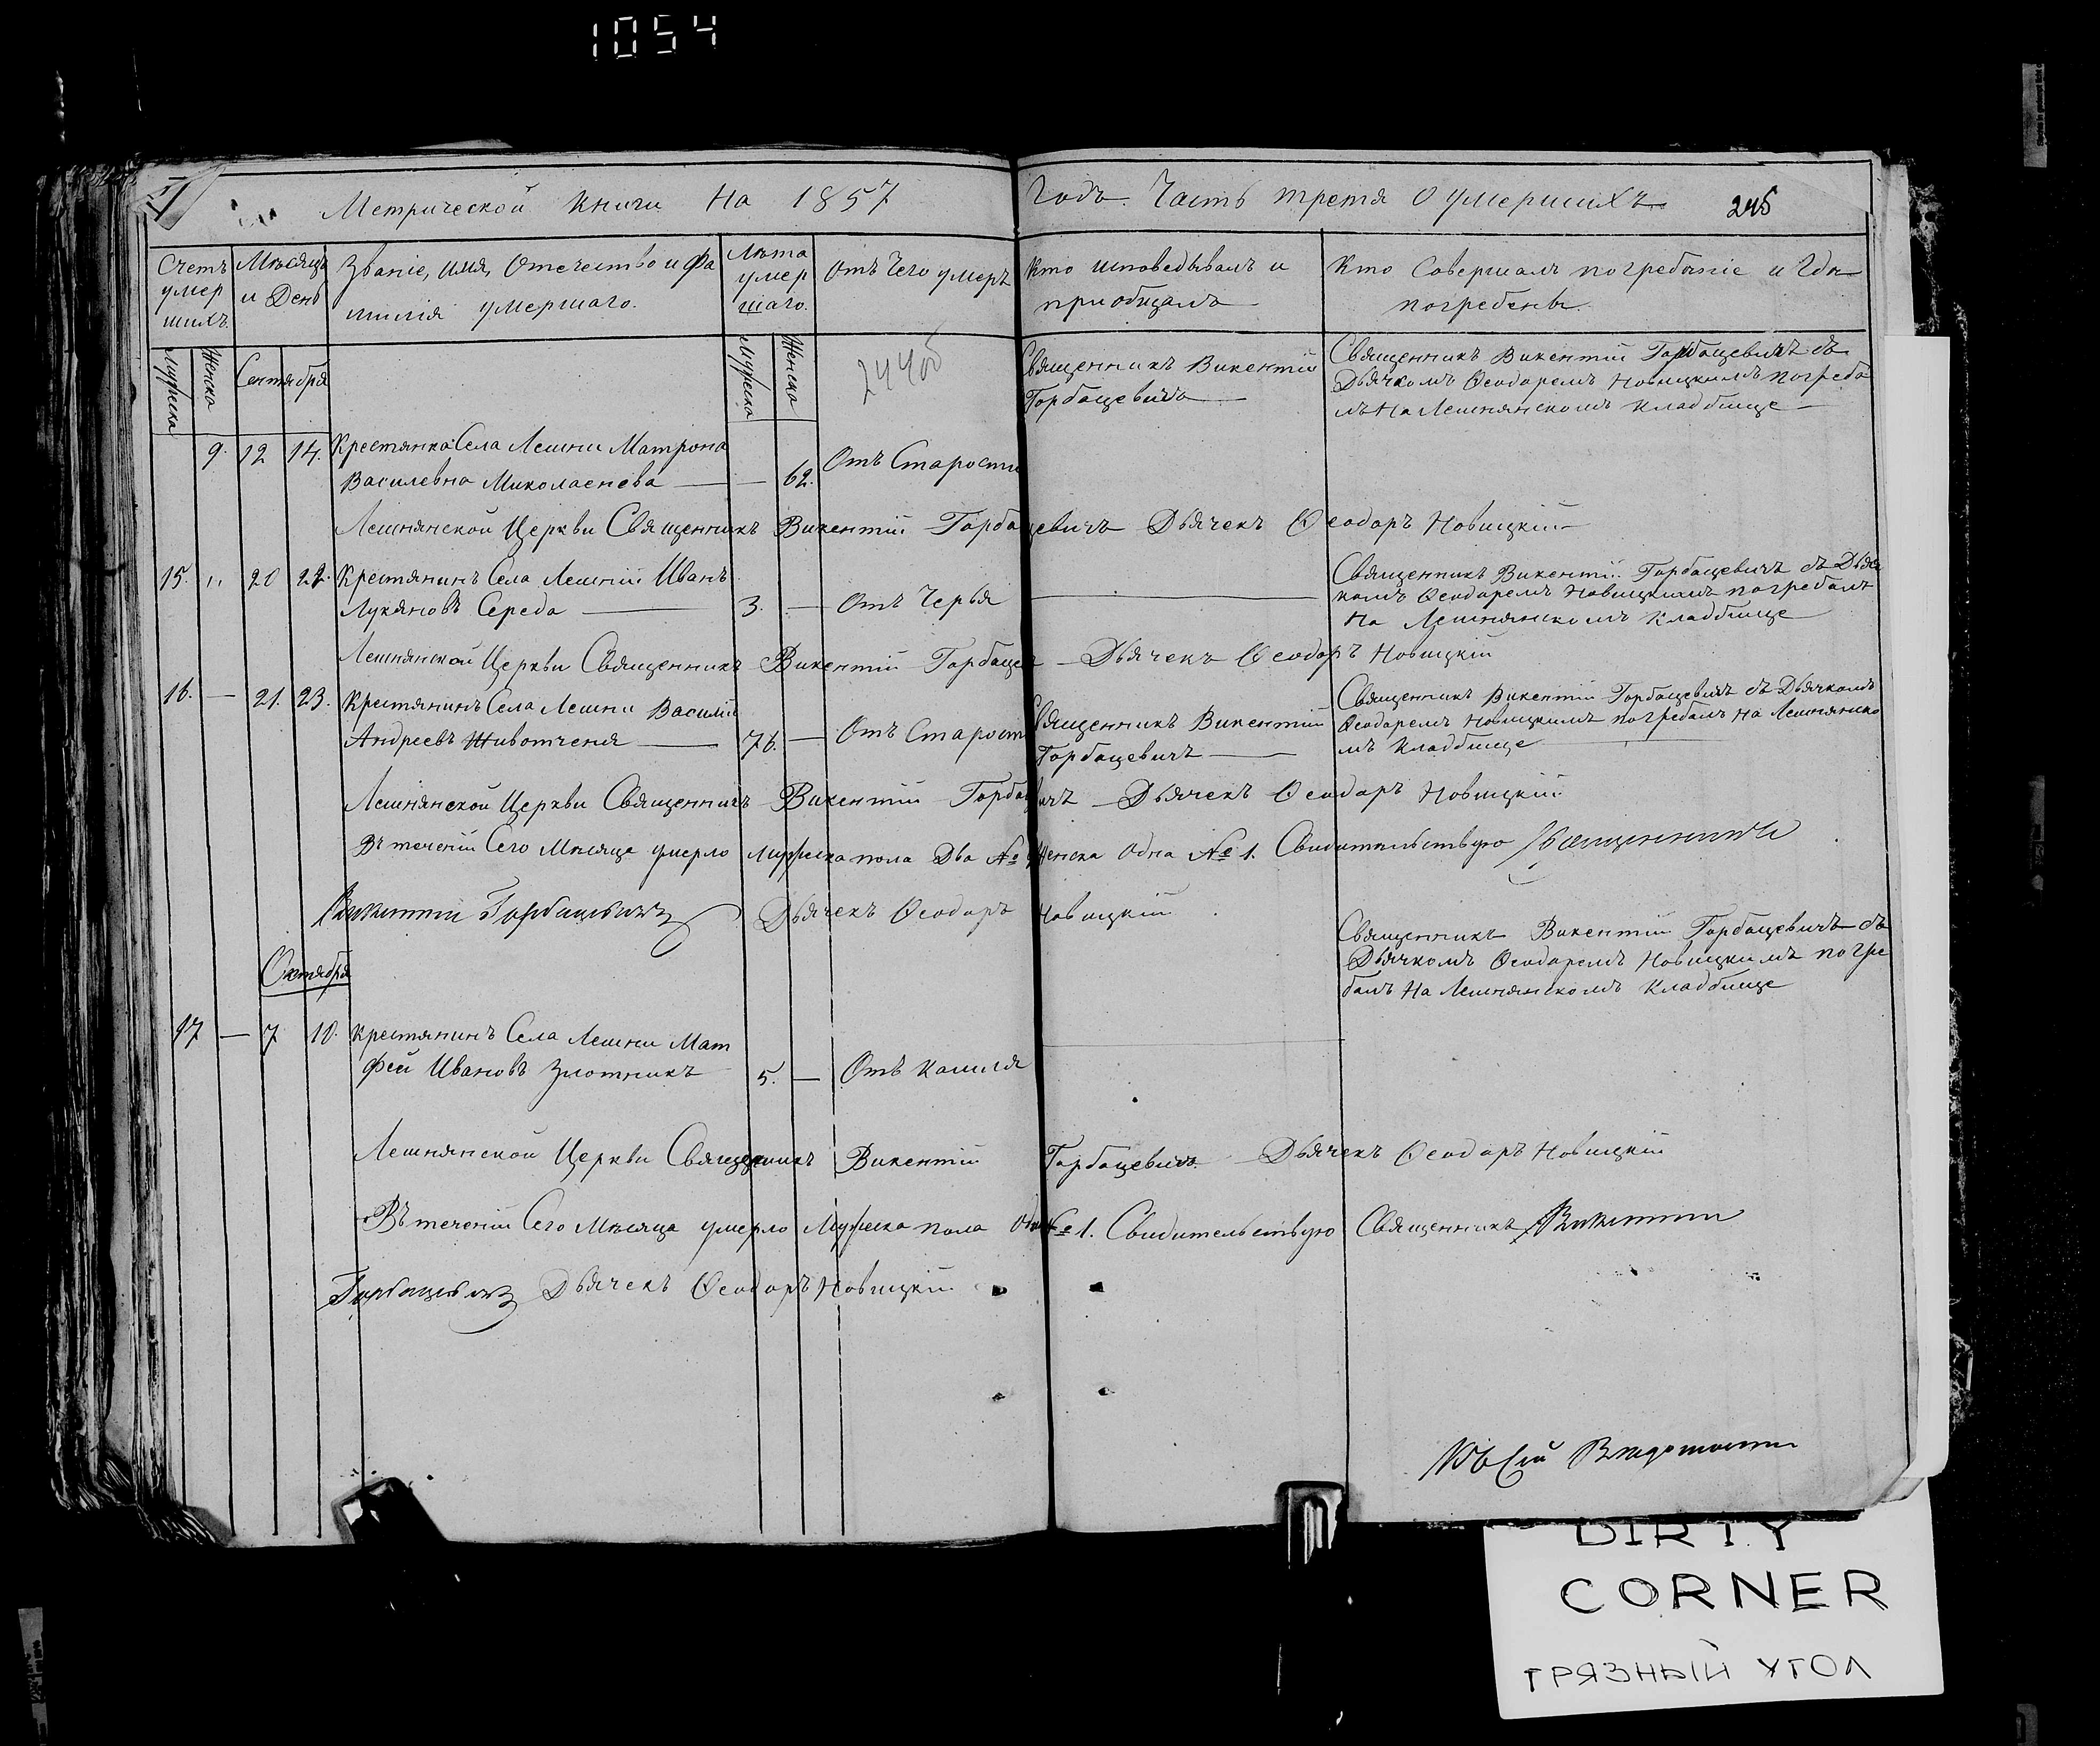 1054
Метрической книги На 1857 Годъ. Часть третя О умершихъ 245
Счетъ умер шихъ.
Мѣсяцъ и День
Званіе, имя, Отечество и Фа милія умершаго.
Лѣта умер шаго.
Отъ Чего умеръ
Кто исповедывалъ и приобщалъ
Кто Совершалъ погребеніе и Где погребены.
Мужеска
Женска
Сентября
Мужеска
Женска
244об
Священникъ Викентій
Горбацевичъ
Священникъ Викентій Горбацевичъ съ
Дьячкомъ Ѳеодоромъ Новицкимъ погреба
лъ На Лешнянскомъ кладбище
9. 12 14. Крестянка Села Лешни Матрона
Василевна Миколаенева — 62. Отъ Старости
Лешнянской Церкви Священникъ Викентій Горбацевичъ Дьячекъ Ѳеодоръ Новицкій
15. „ 20 22. Крестянинъ Села Лешній Иванъ
Лукяновъ Середа — 3. — Отъ Черья
Священникъ Викентій Горбацевичъ съ Дьяч
комъ Ѳеодоремъ Новицкимъ погребалъ
На Лешнянскомъ кладбище
Лешнянской Церкви Священникъ Викентій Горбацев — Дьячекъ Ѳеодоръ Новицкій
16. — 21. 23. Крестянинъ Села Лешни Василій
Андреевъ Животченя — 76. — Отъ Старост
Священникъ Викентій
Горбацевичъ
Священникъ Викентій Горбацевичъ съ Дьячкомъ
Ѳеодоремъ Новицкимъ погребалъ На Лешнянско
мъ кладбище
Лешнянской Церкви Священникъ Викентій Горбацевичъ — Дьячекъ Ѳеодоръ Новицкій
Въ теченіи Сего Мѣсяца умерло Мужеска пола Два № Женска Одна № 1. Свидительствую Священникъ
Викентій Горбацевичъ Дьячекъ Ѳеодоръ Новицкій
Октября
Священникъ Викентій Горбацевичъ съ
Дьячкомъ Ѳеодоремъ Новицкимъ погре
балъ На Лешнянскомъ кладбище
17 — 7 10. Крестянинъ Села Лешни Мат
фей Ивановъ Злотникъ 5. — Отъ кашля
Лешнянской Церкви Священникъ Викентій Горбацевичъ Дьячекъ Ѳеодоръ Новицкій
Въ теченіи Сего Мѣсяца умерло Мужеска пола Одинъ № 1. Свидительствую Священникъ Викентій
Горбацевичъ Дьячекъ Ѳеодоръ Новицкій
Къ Сей
DIRTY
CORNER
ГРЯЗНЫЙ УГОЛ